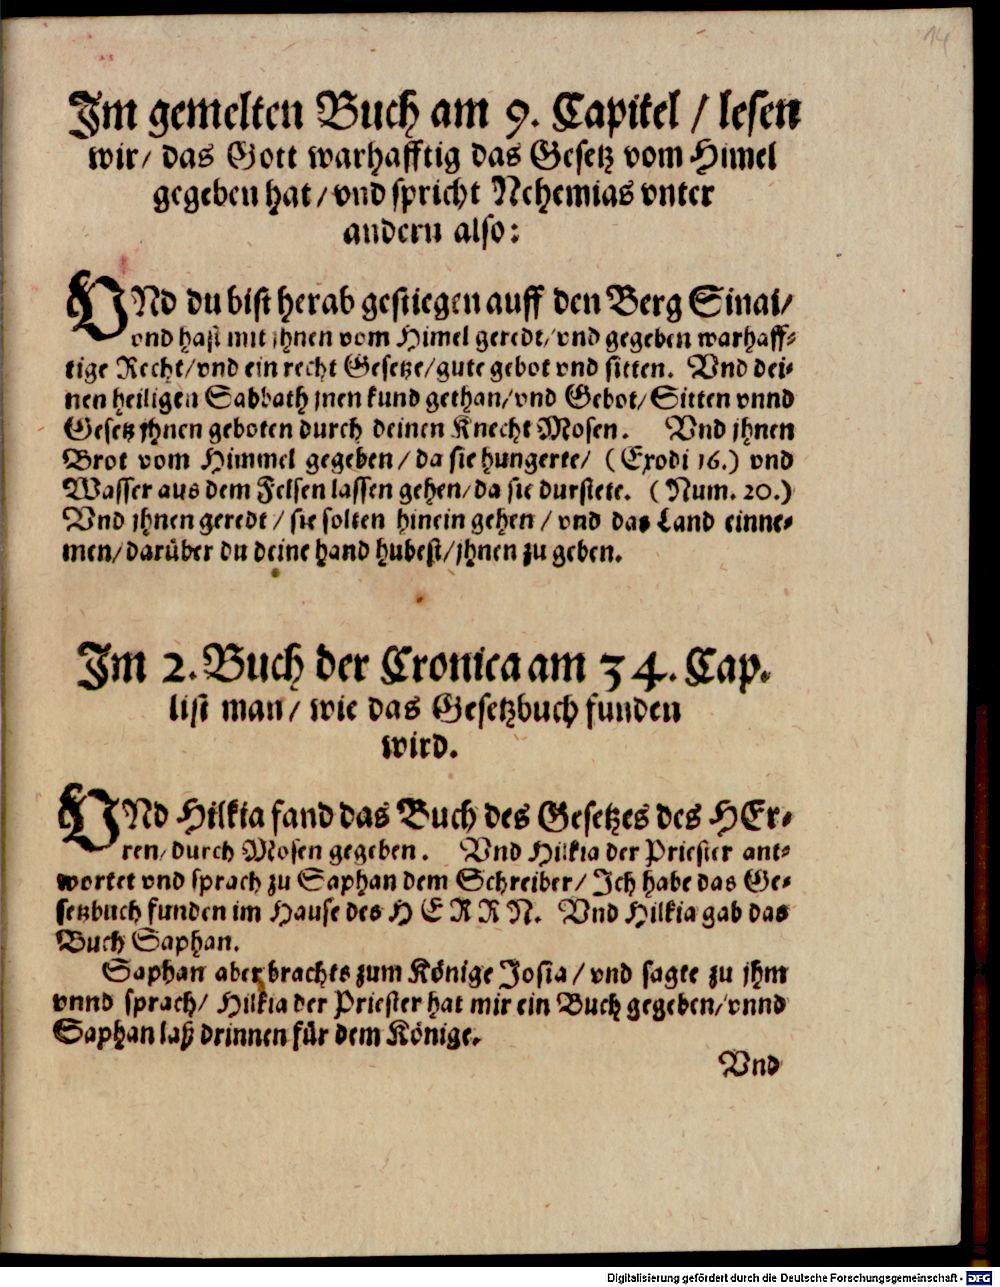 14
Im gemelten Buch am 9. Capitel / lesen
wir / das Gott warhafftig das Gesetz vom Himel
gegeben hat / vnd spricht Nehemias vnter
andern also:
VNd du bist herab gestiegen auff den Berg Sinai /
vnd hast mit jhnen vom Himel geredt / vnd gegeben warhaff-
tige Recht / vnd ein recht Gesetze / gute gebot vnd sitten. Vnd dei-
nen heiligen Sabbath jnen kund gethan / vnd Gebot / Sitten vnnd
Gesetz jhnen geboten durch deinen Knecht Mosen. Vnd jhnen
Brot vom Himmel gegeben / da sie hungerte / (Exodi 16.) vnd
Wasser aus dem Felsen lassen gehen / da sie durstete. (Num. 20.)
Vnd jhnen geredt / sie solten hinein gehen / vnd das Land einne-
men / darüber du deine hand hubest / jhnen zu geben.
Im 2. Buch der Cronica am 34. Cap.
list man / wie das Gesetzbuch funden
wird.
VNd Hilkia fand das Buch des Gesetzes des HEr-
ren / durch Mosen gegeben. Vnd Hilkia der Priester ant-
wortet vnd sprach zu Saphan dem Schreiber / Ich habe das Ge-
setzbuch funden im Hause des HERRN. Vnd Hilkia gab das
Buch Saphan.
Saphan aber brachts zum Könige Josia / vnd sagte zu jhm
vnnd sprach / Hilkia der Priester hat mir ein Buch gegeben / vnnd
Saphan laß drinnen für dem Könige.
Vnd
Digitalisierung gefördert durch die Deutsche Forschungsgemeinschaft - DFG